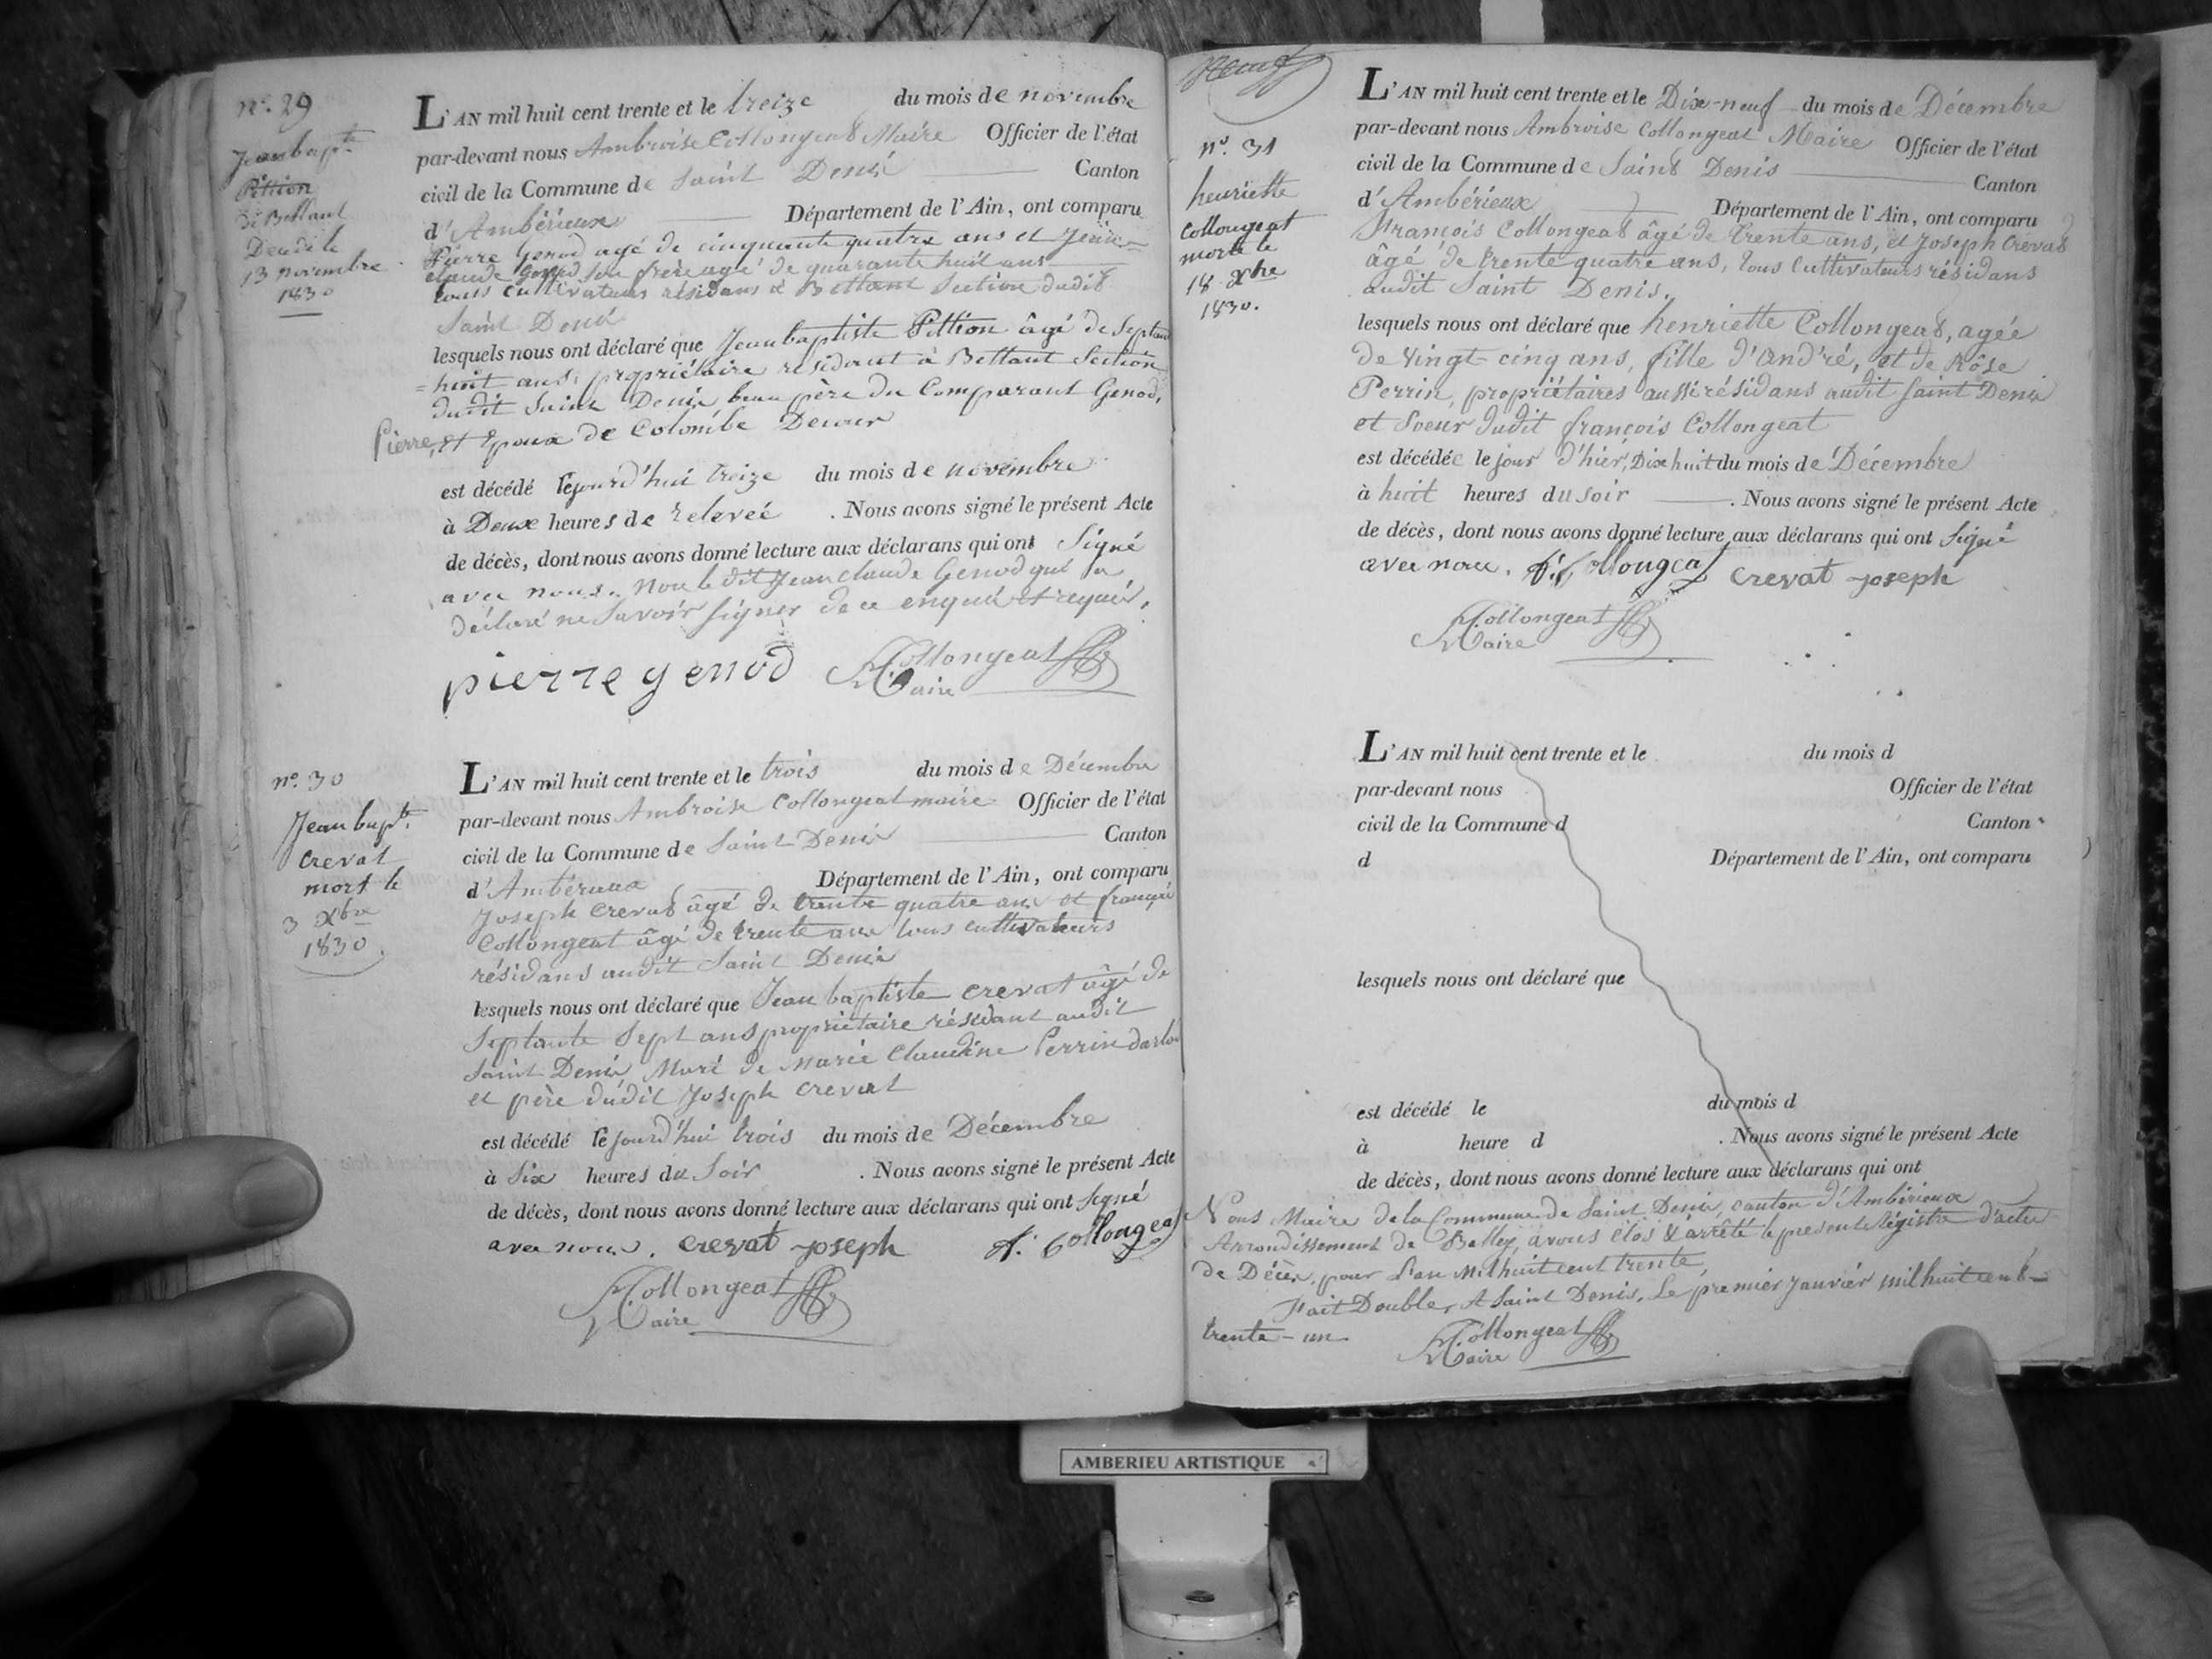 n.° 29
Jean bapt.te
Pittion
de Bettant
Décédé le
13 novembre
1830
L'AN mil huit cent trente et le treize du mois de novembre
par-devant nous Ambroise Collongeat Maire Officier de l'état
civil de la Commune de Saint Denis Canton
d'Ambérieux Département de l'Ain, ont comparu
Pierre Genod agé de cinquante quatre ans et Jean
claude Genod son frère agé de quarante huit ans
tous cultivateurs résidans à Bettant Section dudit
Saint Denis
lesquels nous ont déclaré que Jean baptiste Pittion âgé de Septante
=huit ans, propriétaire résidant à Bettant Section
dudit Saint Denis beau père du Comparant Genod,
Pierre, et Epoux de Colombe
est décédé le jourd'hui treize du mois de novembre
à Deux heures de relevée . Nous avons signé le présent Acte
de décès, dont nous avons donné lecture aux déclarans qui ont Signé
avec nous. Non le dit Jean claude Genod qui a
déclaré ne Savoir signer de ce enquis et requis.
pierre genod Collongeat
Maire
n.° 30
Jean bapt.te
crevat
mort le
3 Xbre
1830.
L'AN mil huit cent trente et le trois du mois de Décembre
par-devant nous Ambroise Collongeat maire Officier de l'état
civil de la Commune de Saint Denis Canton
d'Ambérieux Département de l'Ain, ont comparu
Joseph Crevat âgé de trente quatre ans et françois
Collongeat âgé de trente ans tous cultivateurs
résidans audit Saint Denis
lesquels nous ont déclaré que Jean baptiste crevat âgé de
Septante Sept ans propriétaire résidant audit
Saint Denis, Mari de Marie Claudine Perrin
et père dudit Joseph Crevat
est décédé le jourd'hui trois du mois de Décembre
à Six heures du Soir . Nous avons signé le présent Acte
de décès, dont nous avons donné lecture aux déclarans qui ont Signé
avec nous. crevat joseph f. Collongeat
Collongeat
Maire
n.° 31
henriette
Collongeat
morte le
18. Xbre
1830.
L'AN mil huit cent trente et le Dix-neuf du mois de Décembre
par-devant nous Ambroise Collongeat Maire Officier de l'état
civil de la Commune de Saint Denis Canton
d'Ambérieux Département de l'Ain, ont comparu
François Collongeat âgé de trente ans, et Joseph Crevat
âgé de trente quatre ans, tous Cultivateurs résidans
audit Saint Denis.
lesquels nous ont déclaré que henriette Collongeat, agée
de Vingt-cinq ans, fille d'André, et de Rôse
Perrin, propriétaires aussi résidans audit Saint Denis
et Soeur dudit françois Collongeat
est décédée le jour d'hier, Dix huit du mois de Décembre
à huit heures du soir . Nous avons signé le présent Acte
de décès, dont nous avons donné lecture aux déclarans qui ont Signé
avec nous. f. Collongeat crevat joseph
Collongeat
Maire
L'AN mil huit cent trente et le du mois d
par-devant nous Officier de l'état
civil de la Commune d Canton
d Département de l'Ain, ont comparu
lesquels nous ont déclaré que
est décédé le du mois d
à heure d . Nous avons signé le présent Acte
de décès, dont nous avons donné lecture aux déclarans qui ont
Nous Maire de la Commune de Saint Denis, canton d'Ambérieux
Arrondissement de Belley, avons clos & arrêté le présent Régistre d'actes
de Décès, pour l'an Mil huit cent trente,
Fait Double, A Saint Denis, Le premier Janvier mil huit cent-
trente-un
Collongeat
Maire
AMBERIEU ARTISTIQUE